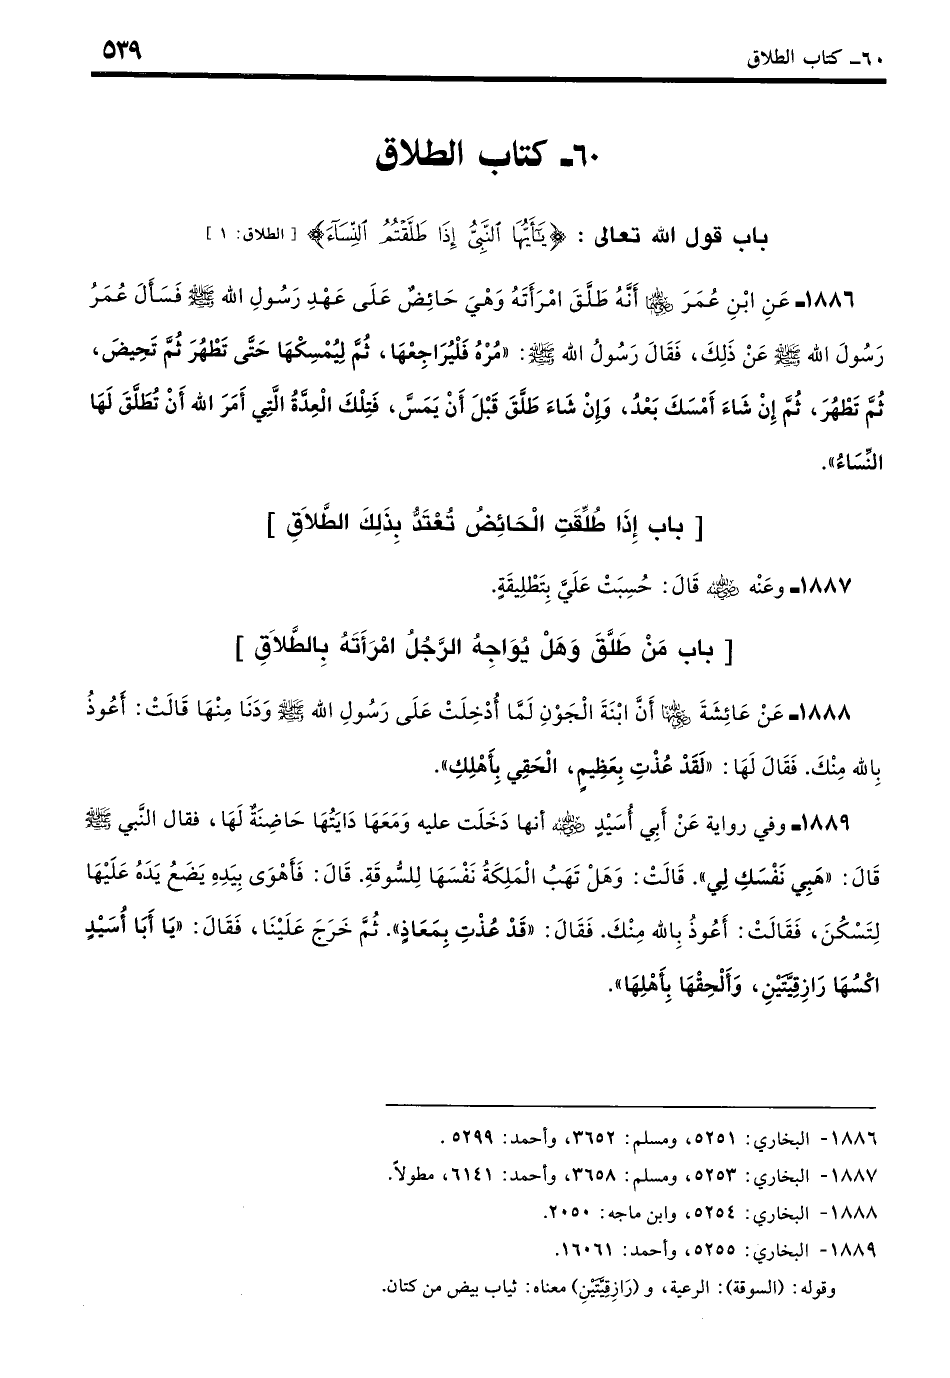 ٦٠ـ كتاب الطلاق
٥٣٩
٦٠ـ كتاب الطلاق
باب قول الله تعالى : ﴿يَـٰٓأَيُّهَا ٱلنَّبِىُّ إِذَا طَلَّقْتُمُ ٱلنِّسَآءَ﴾ [ الطلاق: ١ ]
١٨٨٦ـ عَنِ ابْنِ عُمَرَ رضي الله عنهما أَنَّهُ طَلَّقَ امْرَأَتَهُ وَهْيَ حَائِضٌ عَلَى عَهْدِ رَسُولِ الله ﷺ فَسَأَلَ عُمَرُ
رَسُولَ الله ﷺ عَنْ ذَلِكَ، فَقَالَ رَسُولُ الله ﷺ: «مُرْهُ فَلْيُرَاجِعْهَا، ثُمَّ لِيُمْسِكْهَا حَتَّى تَطْهُرَ ثُمَّ تَحِيضَ،
ثُمَّ تَطْهُرَ، ثُمَّ إِنْ شَاءَ أَمْسَكَ بَعْدُ، وَإِنْ شَاءَ طَلَّقَ قَبْلَ أَنْ يَمَسَّ، فَتِلْكَ الْعِدَّةُ الَّتِي أَمَرَ الله أَنْ تُطَلَّقَ لَهَا
النِّسَاءُ».
[ باب إِذَا طُلِّقَتِ الْحَائِضُ تُعْتَدُّ بِذَلِكَ الطَّلاَقِ ]
١٨٨٧ـ وعَنْه رضي الله عنه قَالَ: حُسِبَتْ عَلَيَّ بِتَطْلِيقَةٍ.
[ باب مَنْ طَلَّقَ وَهَلْ يُوَاجِهُ الرَّجُلُ امْرَأَتَهُ بِالطَّلاَقِ ]
١٨٨٨ـ عَنْ عَائِشَةَ رضي الله عنها أَنَّ ابْنَةَ الْجَوْنِ لَمَّا أُدْخِلَتْ عَلَى رَسُولِ الله ﷺ وَدَنَا مِنْهَا قَالَتْ: أَعُوذُ
بِالله مِنْكَ. فَقَالَ لَهَا: «لَقَدْ عُذْتِ بِعَظِيمٍ، الْحَقِي بِأَهْلِكِ».
١٨٨٩ـ وفي رواية عَنْ أَبِي أُسَيْدٍ رضي الله عنه أنها دَخَلَت عليه وَمَعَهَا دَايَتُهَا حَاضِنَةٌ لَهَا، فقال النَّبي ﷺ
قَالَ: «هَبِي نَفْسَكِ لِي». قَالَتْ: وَهَلْ تَهَبُ الْمَلِكَةُ نَفْسَهَا لِلسُّوقَةِ. قَالَ: فَأَهْوَى بِيَدِهِ يَضَعُ يَدَهُ عَلَيْهَا
لِتَسْكُنَ، فَقَالَتْ: أَعُوذُ بِالله مِنْكَ. فَقَالَ: «قَدْ عُذْتِ بِمَعَاذٍ». ثُمَّ خَرَجَ عَلَيْنَا، فَقَالَ: «يَا أَبَا أُسَيْدٍ
اكْسُهَا رَازِقِيَّتَيْنِ، وَأَلْحِقْهَا بِأَهْلِهَا».
١٨٨٦- البخاري: ٥٢٥١، ومسلم: ٣٦٥٢، وأحمد: ٥٢٩٩ .
١٨٨٧- البخاري: ٥٢٥٣، ومسلم: ٣٦٥٨، وأحمد: ٦١٤١، مطولاً.
١٨٨٨- البخاري: ٥٢٥٤، وابن ماجه: ٢٠٥٠.
١٨٨٩- البخاري: ٥٢٥٥، وأحمد: ١٦٠٦١.
وقوله: (السوقة): الرعية، و (رَازِقِيَّتَيْنِ) معناه: ثياب بيض من كتان.